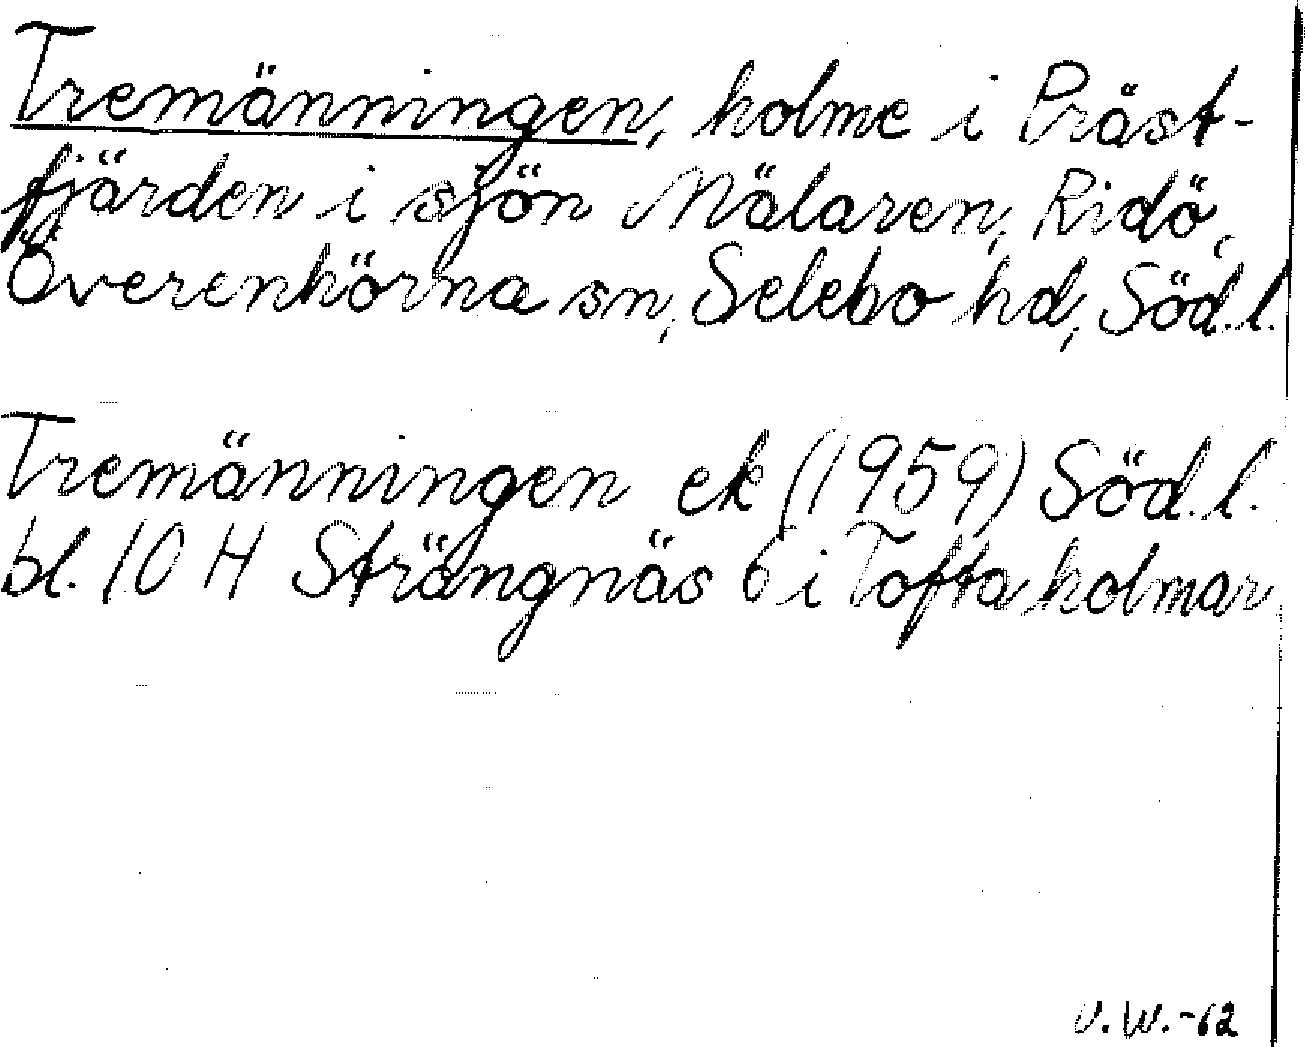 Tremänningen, holme i Präst-
fjärden i sjön Mälaren, Ridö,
Överenhörna sn, Selebo hd, Söd.l.
Tremänningen ek (1959) Söd.l.
bl. 10 H Strängnäs 6 i Toftaholmar
V.W.-62